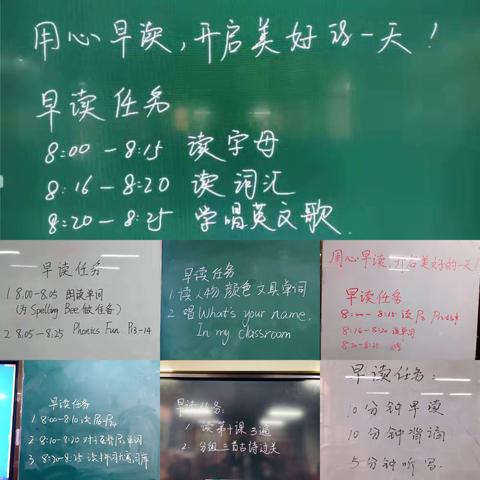 用心早读,开启美好的一天!
早读任务
8:00-8:15 读字母
8:16-8:20 读词汇
8:20-8:25 学唱英文歌.
早读任务
1 8:00-8:05 朗读单词
(为 Spelling Bee 做任务)
2 8:05-8:25 Phonics Fun P13-14
早读任务
1. 读人物 颜色 文具单词
2 唱 What's your name.
In my classroom
用心早读,开启美好的一天!
早读任务
8:00-8:15 读
8:16-8:20 读单词
8:20-8:25
早读任务
1. 8:00-8:10 读
2. 8:10-8:20 单词
3. 8:20-8:25 读
早读任务:
1. 读第十课 三遍
2. 分组 三首古诗过关
早读任务:
10分钟早读
10分钟背诵
5分钟听写.